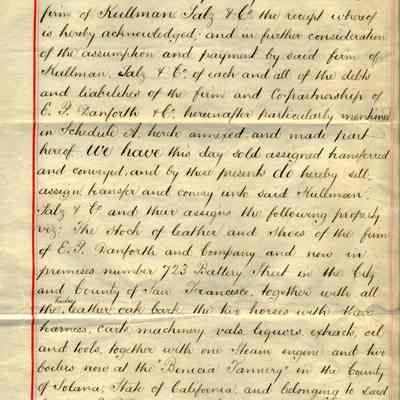 firm of Kullman, Salz & Co. the receipt whereof
is hereby acknowledged; and in further consideration
of the assumption and payment by said firm of
Kullman, Salz & Co. of each and all of the debts
and liabilities of the firm and Copartnership of
E. P. Danforth & Co, hereinafter particularly mentioned
in Schedule A. hereto annexed and made part
hereof We have this day sold assigned transferred
and conveyed, and by these presents do hereby sell,
assign, transfer and convey unto said Kullman,
Salz & Co and their assigns the following property
viz: The Stock of leather and Shoes of the firm
of E. P. Danforth and Company and now in
premises number 723 Battery Street in the City
and County of San Francisco, together with all
the leather oak bark the two horses with their
harness, carts, machinery, vats, liquors, extracts, oil
and tools, together with one Steam engine and two
boilers now at the "Benicia Tannery" in the County
of Solano, State of California, and belonging to said